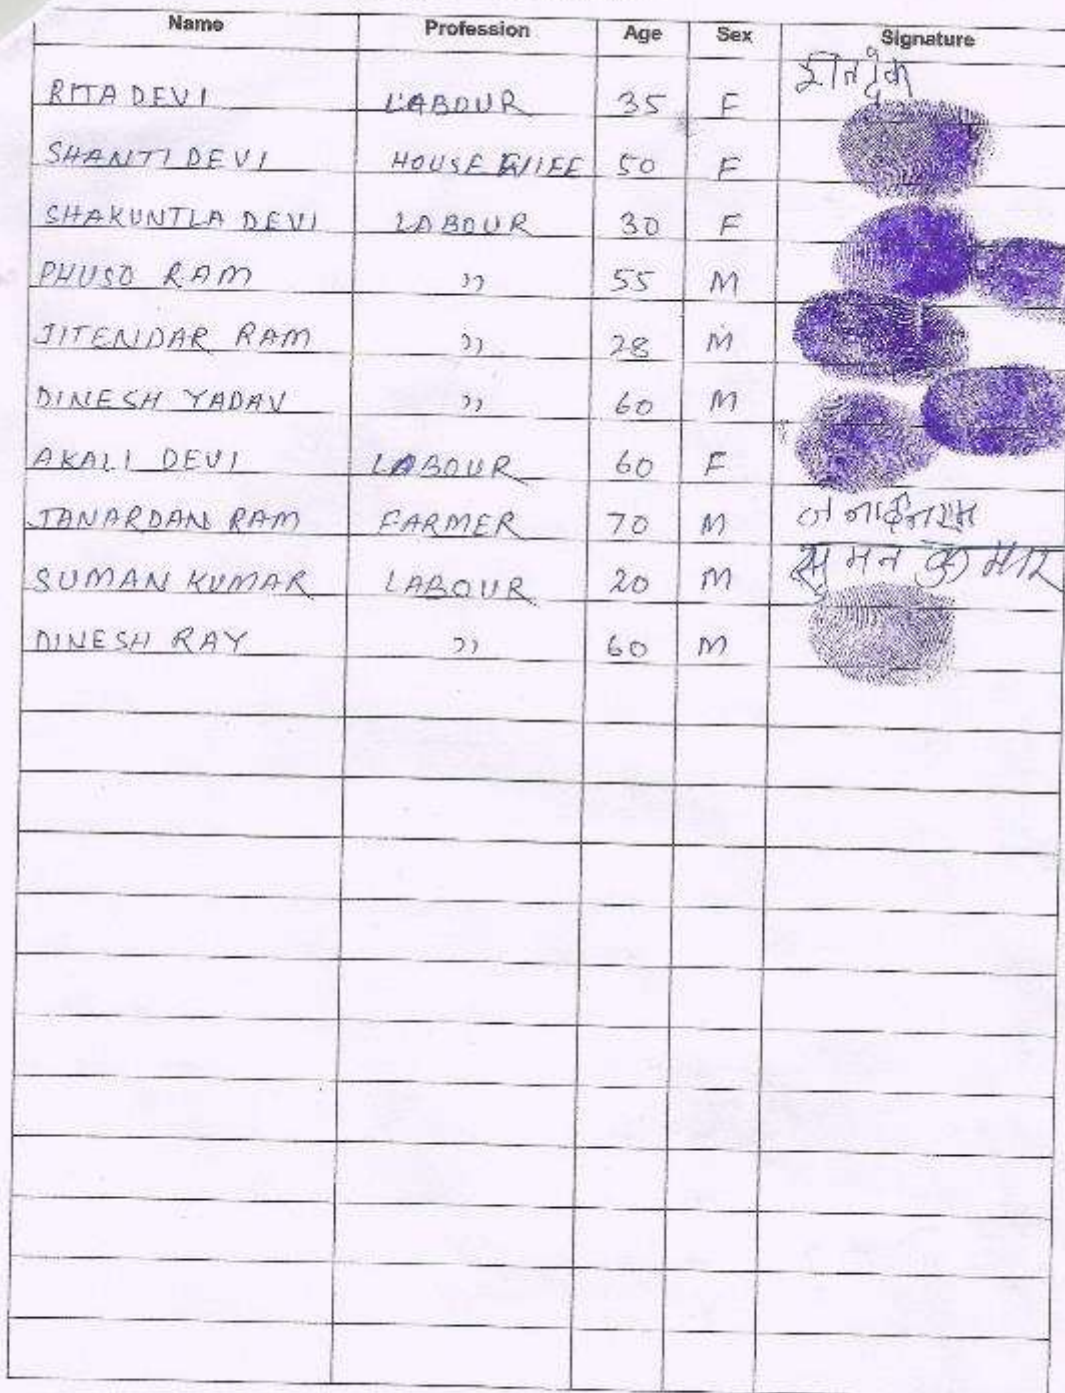 Name Profession Age Sex Signature
RITA DEVI LABOUR 35 F
SHANTI DEVI HOUSE WIFE 50 F
SHAKUNTLA DEVI LABOUR 30 F
PHUSO RAM ,, 55 M
JITENDAR RAM ,, 28 M
DINESH YADAV ,, 60 M
AKALI DEVI LABOUR 60 F
JANARDAN RAM FARMER 70 M जनार्दन राम
SUMAN KUMAR LABOUR 20 M सुमन कुमार
DINESH RAY ,, 60 M